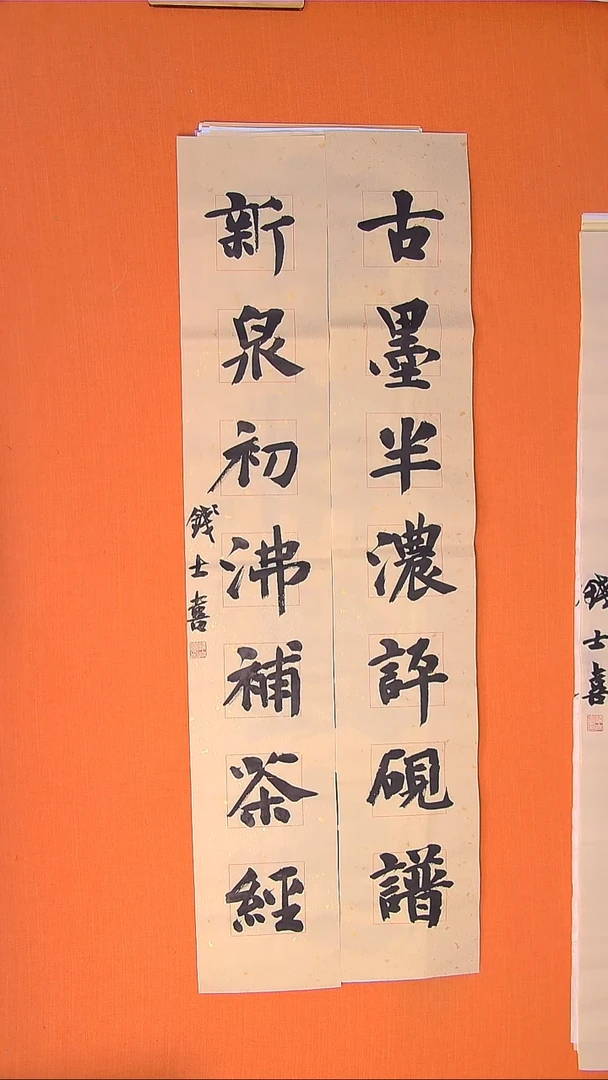 古墨半濃評硯譜
新泉初沸補茶經
錢士喜
錢士喜